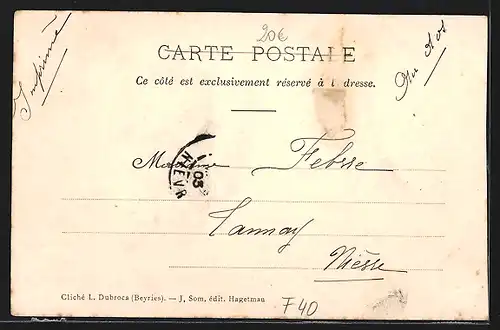 20€
CARTE POSTALE
Ce côté est exclusivement réservé à l dresse.
Imprimé
Madame Febvre
Tannay
Nièvre
FEVR
03
Cliché L. Dubrocs (Beyries). — J, Som, édit. Hagetmau
F40